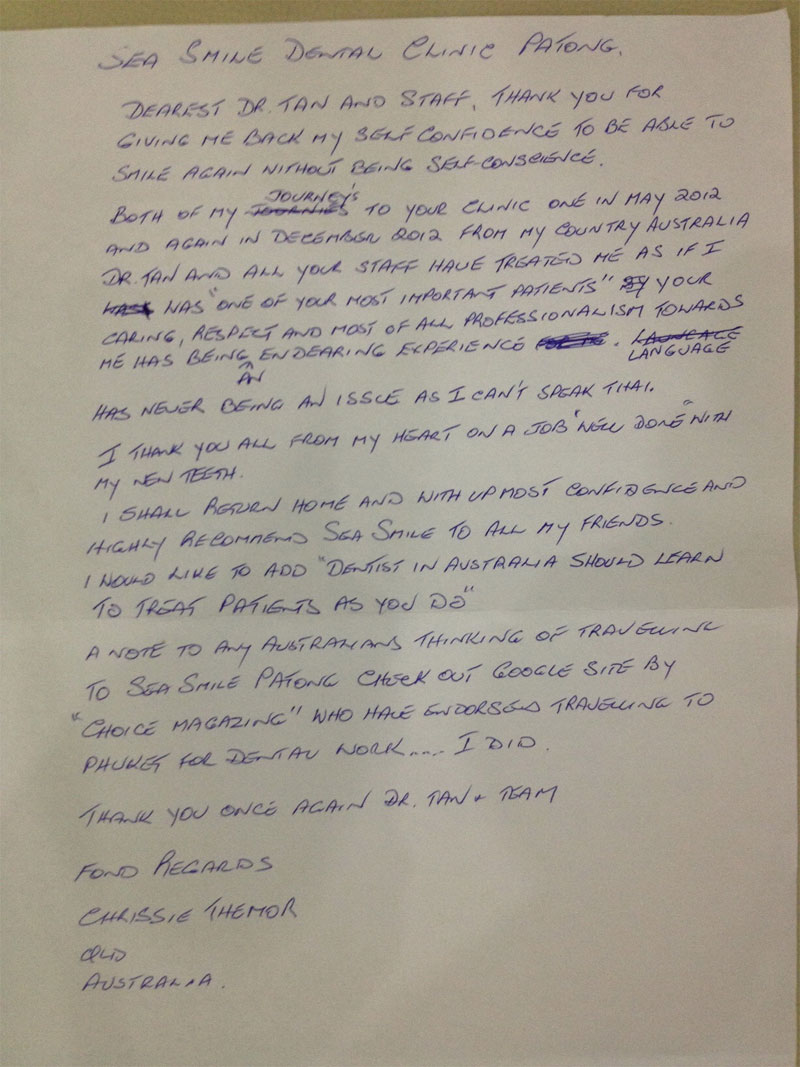 SEA SMILE DENTAL CLINIC PATONG.
DEAREST DR. TAN AND STAFF, THANK YOU FOR
GIVING ME BACK MY SELF CONFIDENCE TO BE ABLE TO
SMILE AGAIN WITHOUT BEING SELF-CONSCIENCE.
JOURNEY'S
BOTH OF MY JOORNIES TO YOUR CLINIC ONE IN MAY 2012
AND AGAIN IN DECEMBER 2012 FROM MY COUNTRY AUSTRALIA
DR. TAN AND ALL YOUR STAFF HAVE TREATED ME AS IF I
WAS "ONE OF YOUR MOST IMPORTANT PATIENTS" BY YOUR
CARING, RESPECT AND MOST OF ALL PROFESSIONALISM TOWARDS
ME HAS BEING ENDEARING EXPERIENCE . LAUNCAGE
LANGUAGE
AN
HAS NEVER BEING AN ISSUE AS I CAN'T SPEAK THAI.
I THANK YOU ALL FROM MY HEART ON A JOB "WELL DONE" WITH
MY NEW TEETH.
I SHALL RETURN HOME AND WITH UPMOST CONFIDENCE AND
HIGHLY RECOMMEND SEA SMILE TO ALL MY FRIENDS.
I WOULD LIKE TO ADD "DENTIST IN AUSTRALIA SHOULD LEARN
TO TREAT PATIENTS AS YOU DO"
A NOTE TO ANY AUSTRALIANS THINKING OF TRAVELLING
TO SEA SMILE PATONG CHECK OUT GOOGLE SITE BY
"CHOICE MAGAZING" WHO HAVE ENDORSED TRAVELLING TO
PHUKET FOR DENTAL WORK.... I DID.
THANK YOU ONCE AGAIN DR. TAN + TEAM
FOND REGARDS
CHRISSIE THEMOR
QLD
AUSTRALIA.